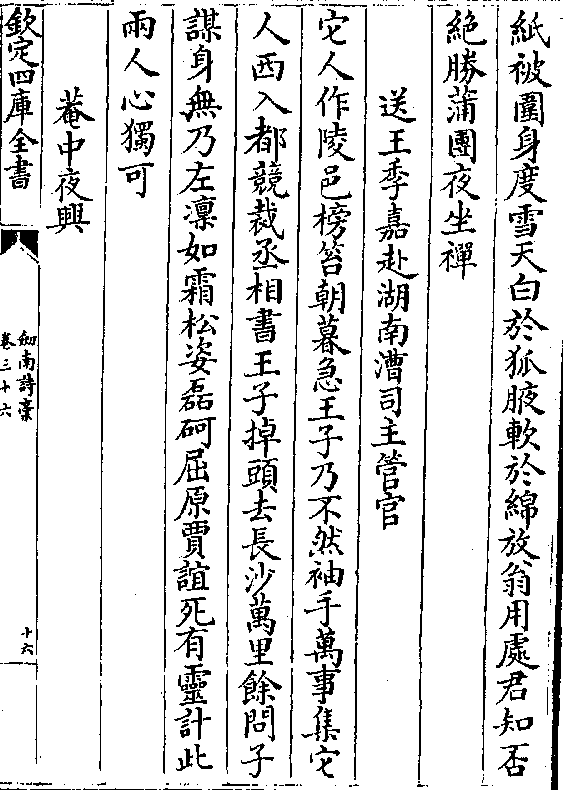 紙被圍身度雪天白於狐腋軟於綿放翁用處君知否
絶勝蒲團夜坐禪
送王季嘉赴湖南漕司主管官
它人作陵邑榜笞朝暮急王子乃不然袖手萬事集它
人西入都競裁丞相書王子掉頭去長沙萬里餘問子
謀身無乃左凛如霜松姿磊砢屈原賈誼死有靈計此
兩人心獨可
菴中夜興
欽定四庫全書
劍南詩稾
卷三十六
十六